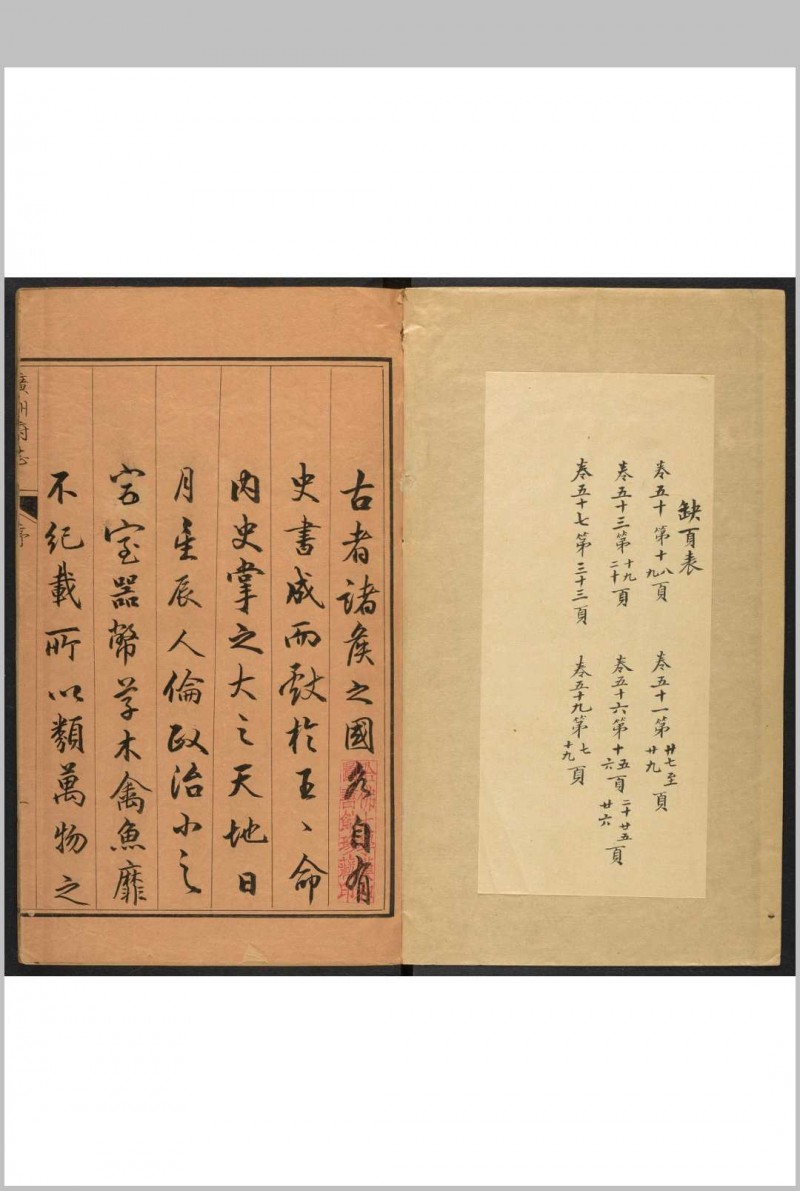 缺頁表
卷五十 第十八九頁 卷五十一第廿七至廿九頁
卷五十三第十九二十頁 卷五十六第十五六頁 二十廿五廿六頁
卷五十七 第三十三頁 卷五十九第七十九頁
古者諸侯之國各自有
史書成而獻於王〻命
內史掌之大之天地日
月星辰人倫政治小之
宮室器幣草木禽魚靡
不紀載所以類萬物之
廣州府志
序